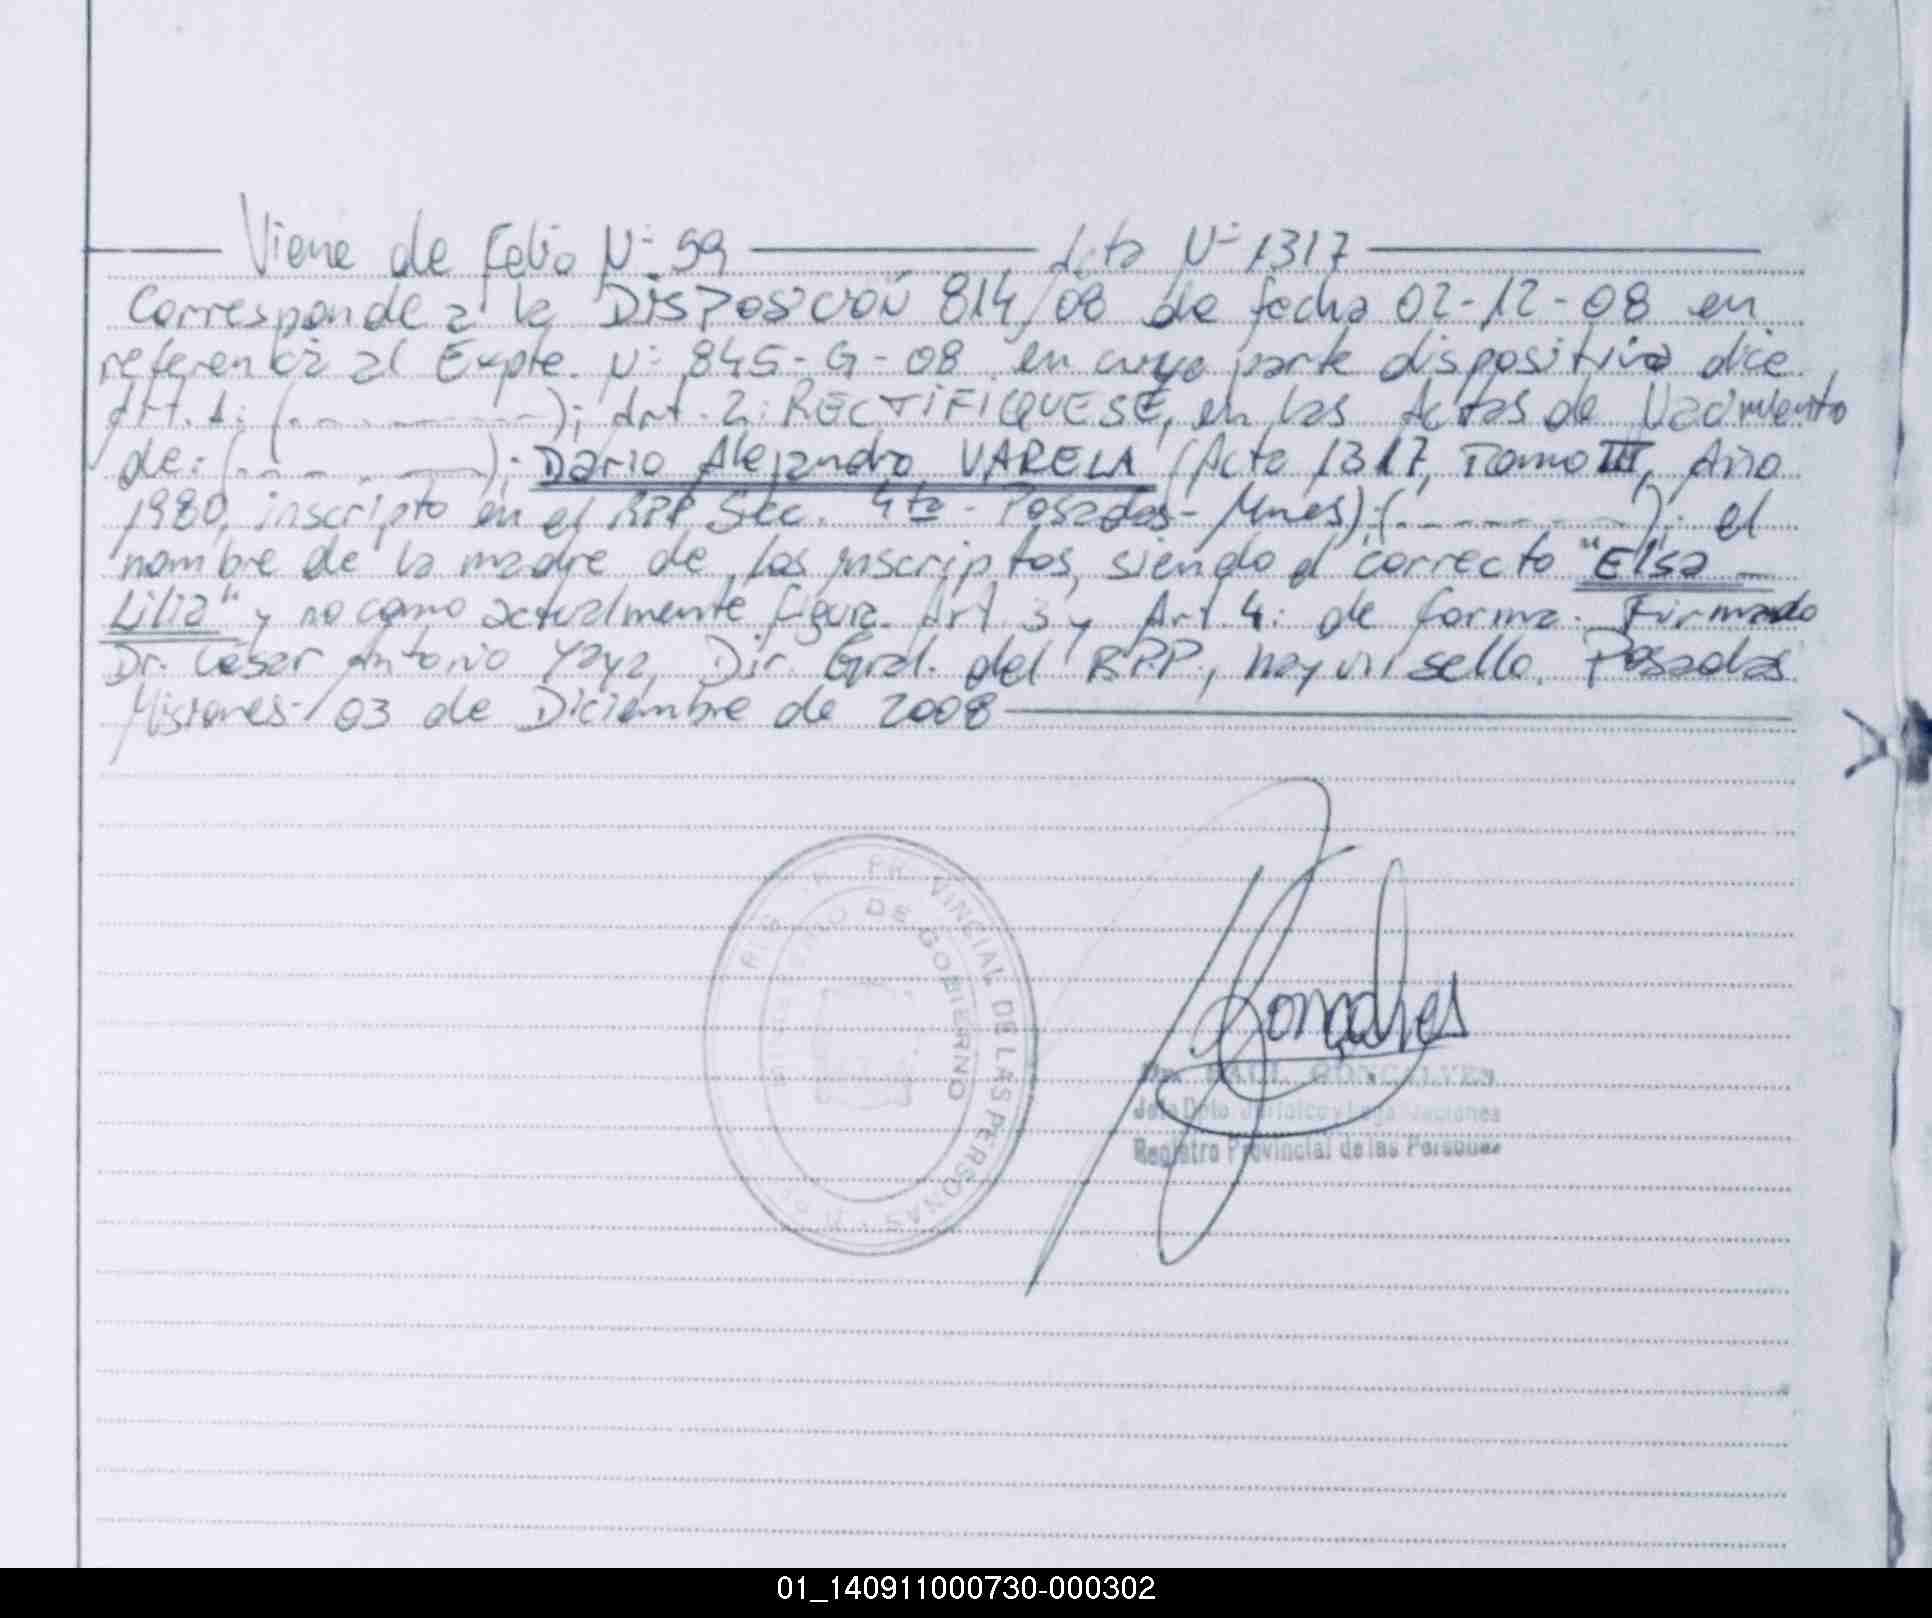 Viene de Folio Nº 59 Acta Nº 1317
Corresponde a la DISPOSICIÓN 814/08 de fecha 02-12-08 en
referencia al Expte. Nº 845-G-08 en cuya parte dispositiva dice
Art. 1: (..........); Art. 2: RECTIFIQUESE, en las Actas de Nacimiento
de: (..........); Dario Alejandro VARELA (Acta 1317, Tomo III, Año
1980, inscripto en el RPP Sec. 4ta - Posadas - Mnes); (..........); el
nombre de la madre de los inscriptos, siendo el correcto "Elsa
Lilia" y no como actualmente figura. Art 3 y Art. 4: de forma. Firmado
Dr. César Antonio Yaya, Dir. Gral. del RPP., hay un sello. Posadas
Misiones 03 de Diciembre de 2008
PROVINCIAL DE LAS PERSONAS
DE GOBIERNO
Goncalves
RAUL GONCALVES
Jefe Dpto. Juridico y
Registro Provincial de las Personas
01_140911000730-000302